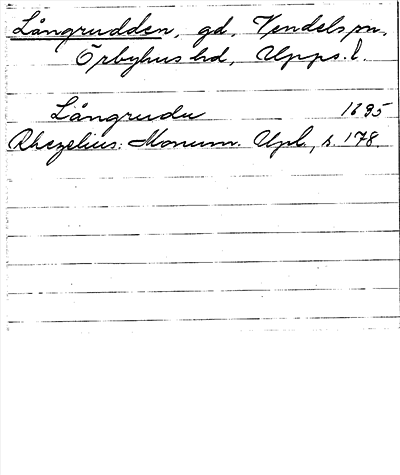 Långrudden, gd, Vendels sn,
Örbyhus hd, Upps. l.
Långrudu 1695
Rhezelius: Monum. Upl., s. 178.